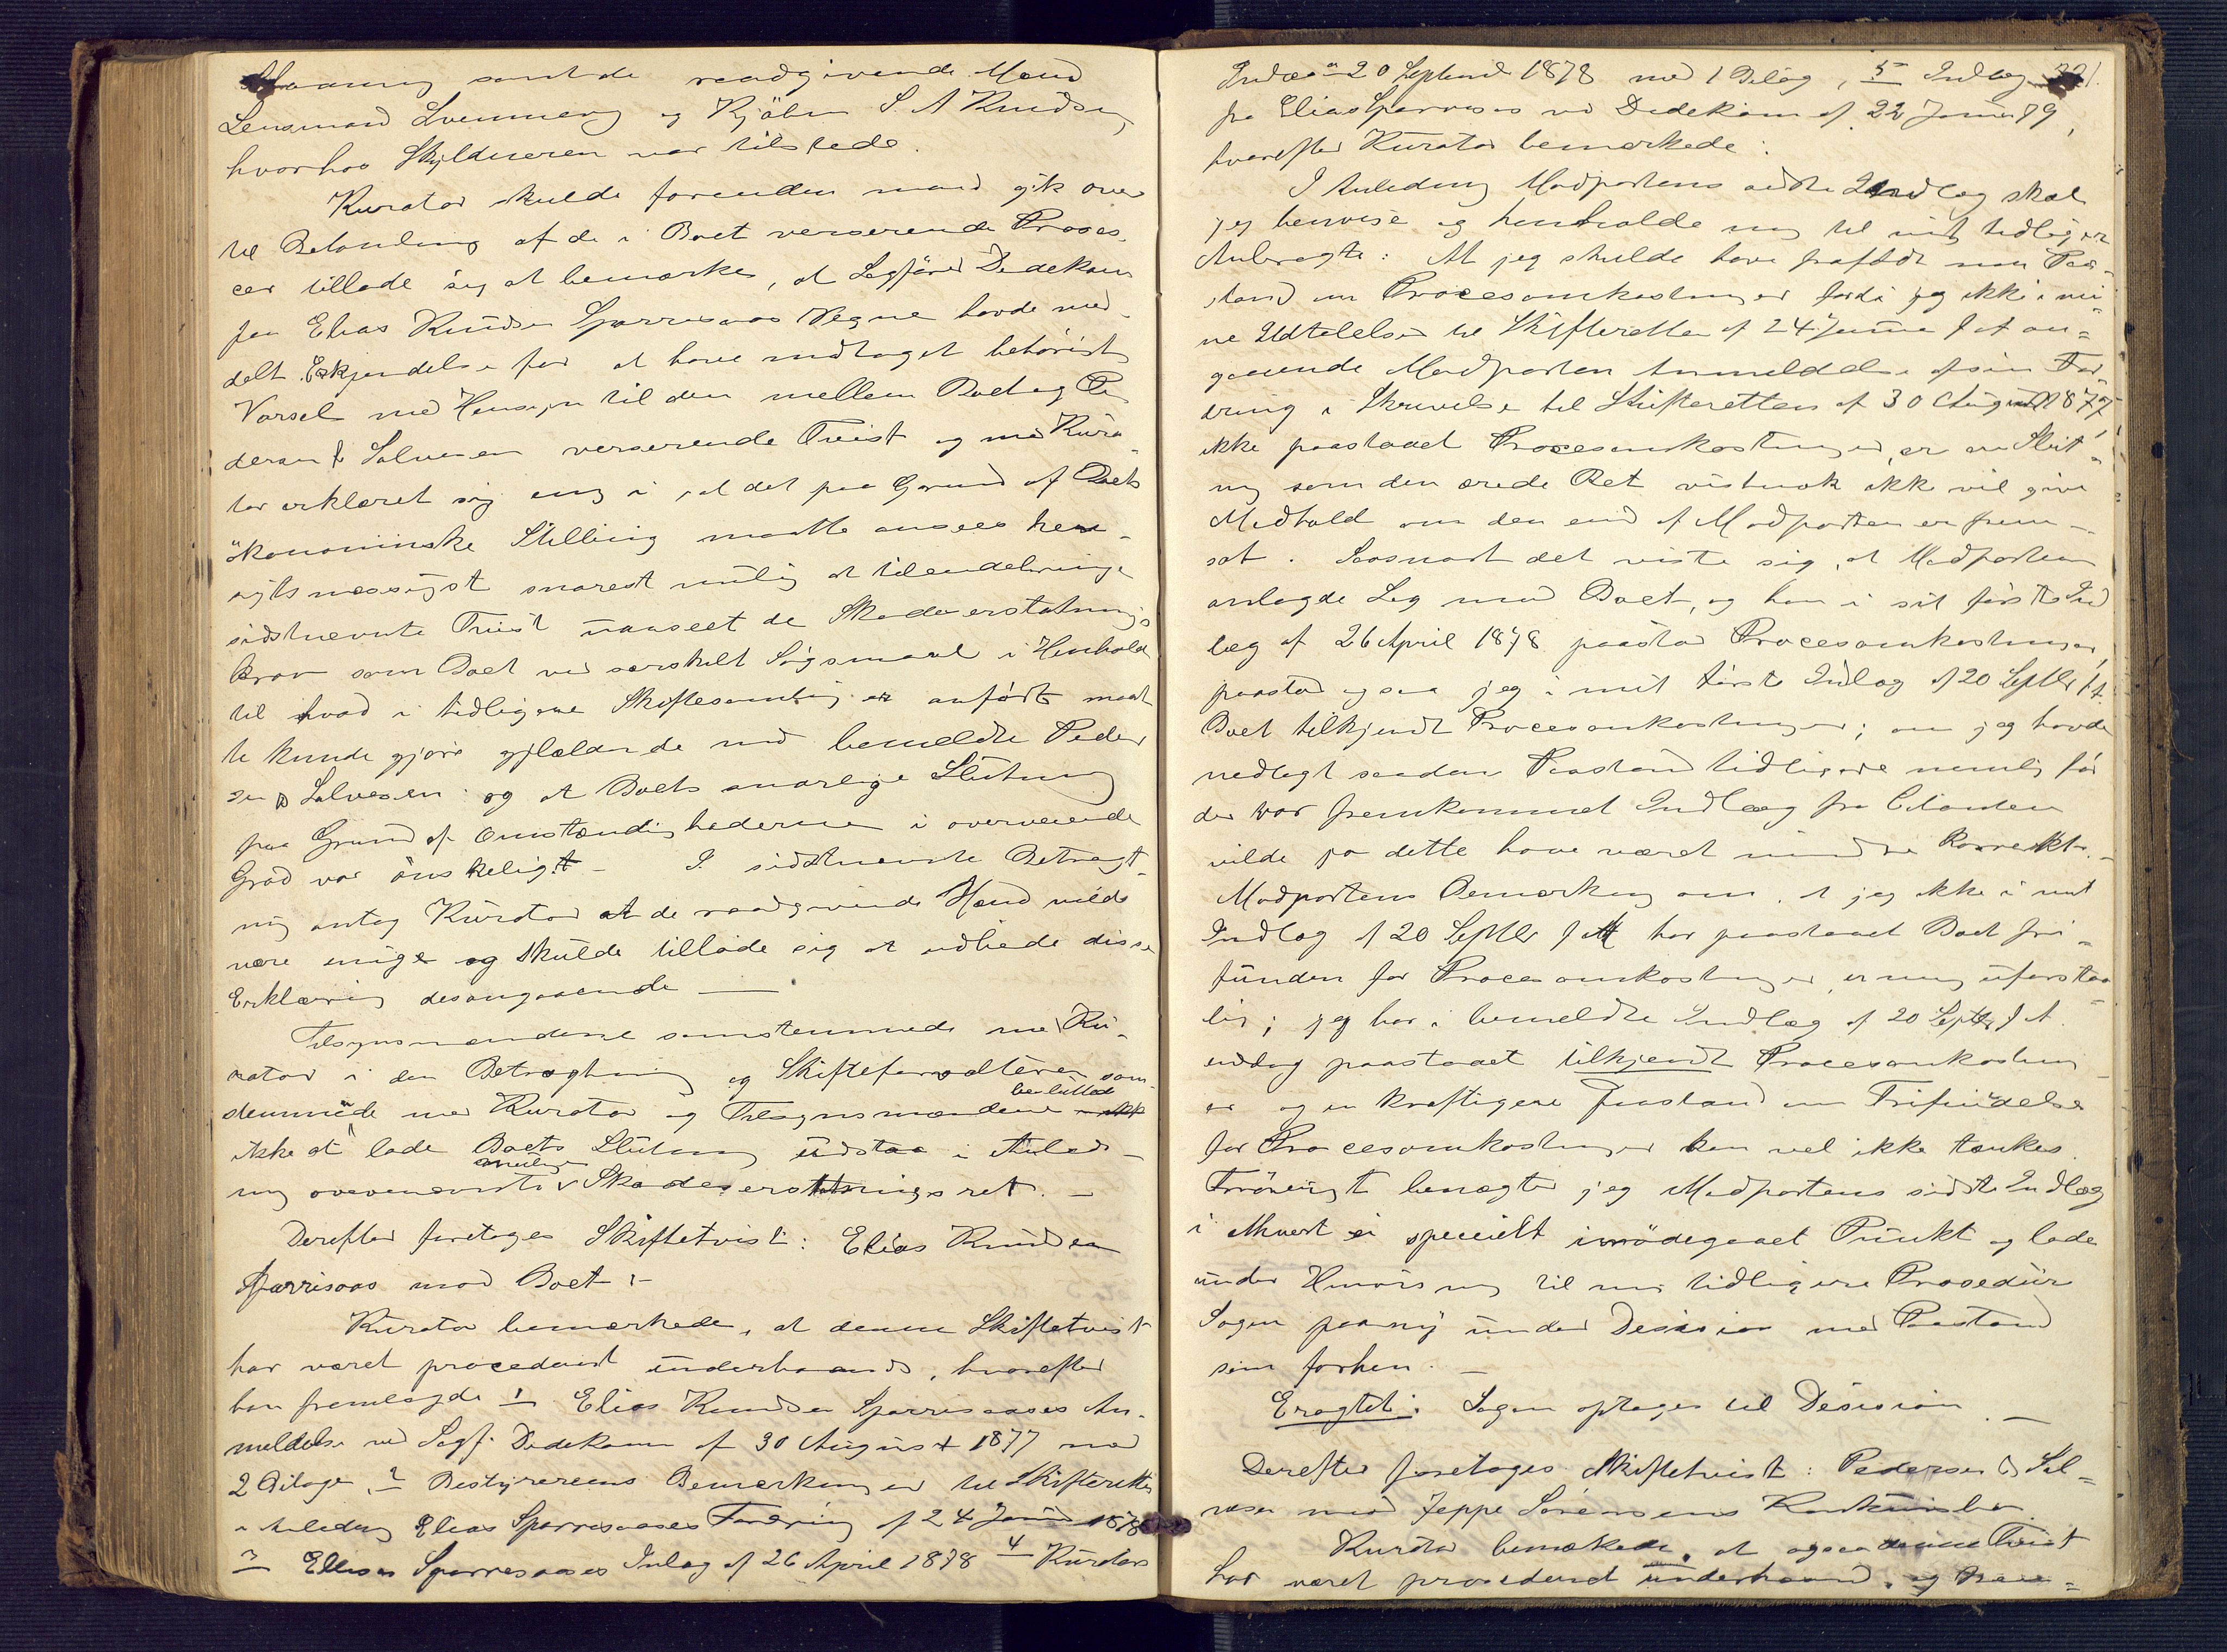 samt de raadgivende Mænd
Lensmand Svenneving og Kjöbm S. A Knudsen,
hvorhos Skyldneren var tilstede.
Kurator skulde forinden man gik over
til Behandling af de i Boet verserende Proces-
ser tillade sig at bemærke, at Sagförer Dedekam
paa Elias Knudsen Sparresaas Vegne havde med-
delt Erkjendelse for at have modtaget behörigt
Varsel med Hensyn til den mellem Boet og Pe-
dersen & Salvesen verserende Tvist og med Kura-
tor erklæret sig enig i, at det paa Grund af Boets
ökonominske Stilling maatte ansees hen-
sigtsmæssigst snarest mulig at tilendebringe
sidstnævnte Tvist uanseet de Skadeserstatnings
krav som Boet ved særskilt Sögsmaal i Henhold
til hvad i tidligere Skiftesamling er anfört maat
te kunde gjöre gjældende mod bemeldte Peder
sen & Salvesen og at Boets snarlige Slutning
paa Grund af Omstændighederne i overveiende
Grad var önskeligt - I sidstnævnte Betragt-
ning antog Kurator at de raadgivende Mænd vilde
være enige og skulde tillade sig at udbede disses
Erklæring desangaaende —
Tilsynsmændene samstemmede med Ku-
rator i den Betragtning og Skifteforvalteren sam-
stemmede med Kurator og Tilsynsmændene
besluttede
ikke at lade Boets Slutning udstaa i Anled-
ning ovennævnte
mulige
Skadeserstatningsret. —
Derefter foretages Skiftetvist: Elias Knudsen
Sparrisaas mod Boet:-
Kurator bemærkede, at denne Skiftetvist
har været procederet underhaands, hvorefter
han fremlagde 1 Elias Knudsen Sparrisaases An-
meldelse ved Sagf. Dedekam af 30 August 1877 med
2 Bilage, 2 Bestyrerens Bemærkninger til Skifteretten
i Anledning Elias Sparresaases Fordring af 24 Januar 1878
3 Eliases Sparresaases Inlæg af 26 April 1878 4 Kurators
Indlæg 20 Septemb 1878 med 1 Bilag, 5 Indlæg
fra Elias Sparresaas ved Dedekam af 22 Januar 79,
hvorefter Kurator bemærkede:
I Anledning Modpartens sidste Indlæg skal
jeg benvise og henholde mig til mit tidligere
Anbragte: At jeg skulde have frafaldt min Paa-
stand om Procesomkostninger fordi jeg ikke i mi-
ne Udtalelser til Skifteretten af 24 Januar f A an-
gaaende Modparten Anmeldelse af sin For-
dring i Skrivelse til Skifteretten af 30 August 1877
ikke paastaaet Procesomkostninger, er en Slut-
ning som den ærede Ret vistnok ikke vil give
Medhold om den end af Modparten er frem-
sat. Saasnart det viste sig, at Modparten
anlagde Sag mod Boet, og han i sit förste Ind
læg af 26 April 1878 paastod Procesomkostninger,
paastod ogsaa jeg i mit förste Indlæg af 20 Septbr f A.
Boet tilkjendt Procesomkostninger; om jeg havde
nedlagt saadan Paastand tidligere nemlig för
der var fremkommet Indlæg fra Citanten
vilde jo dette have været mindre korrekt.-
Modpartens Bemærkning om, at jeg ikke i mit
Indlæg af 20 Septbr f A har paastaaet Boet fri-
funden for Procesomkostninger, er mig uforstaa
lig; jeg har i bemeldte Indlæg af 20 Septbr f A.
endog paastaaet tilkjendt Procesomkostnin-
er og en kraftigere Paastand om Frifindelse
for Procesomkostninger kan vel ikke tænkes.
Forövrigt benægter jeg Modpartens sidste Indlæg
i ethvert ei specielt imödegaaet Punkt og lader
under Henvisning til min tidligere Procedür
Sagen paany under Desision med Paastand
som forhen. —
Eragtet: Sagen optages til Desision —
Derefter foretages Skiftetvist: Pedersen & Sal-
vesen mod Jeppe Sörensens Konkursbo
Kurator bemærkede, at ogsaa denne Tvist
har været procederet underhaand, og